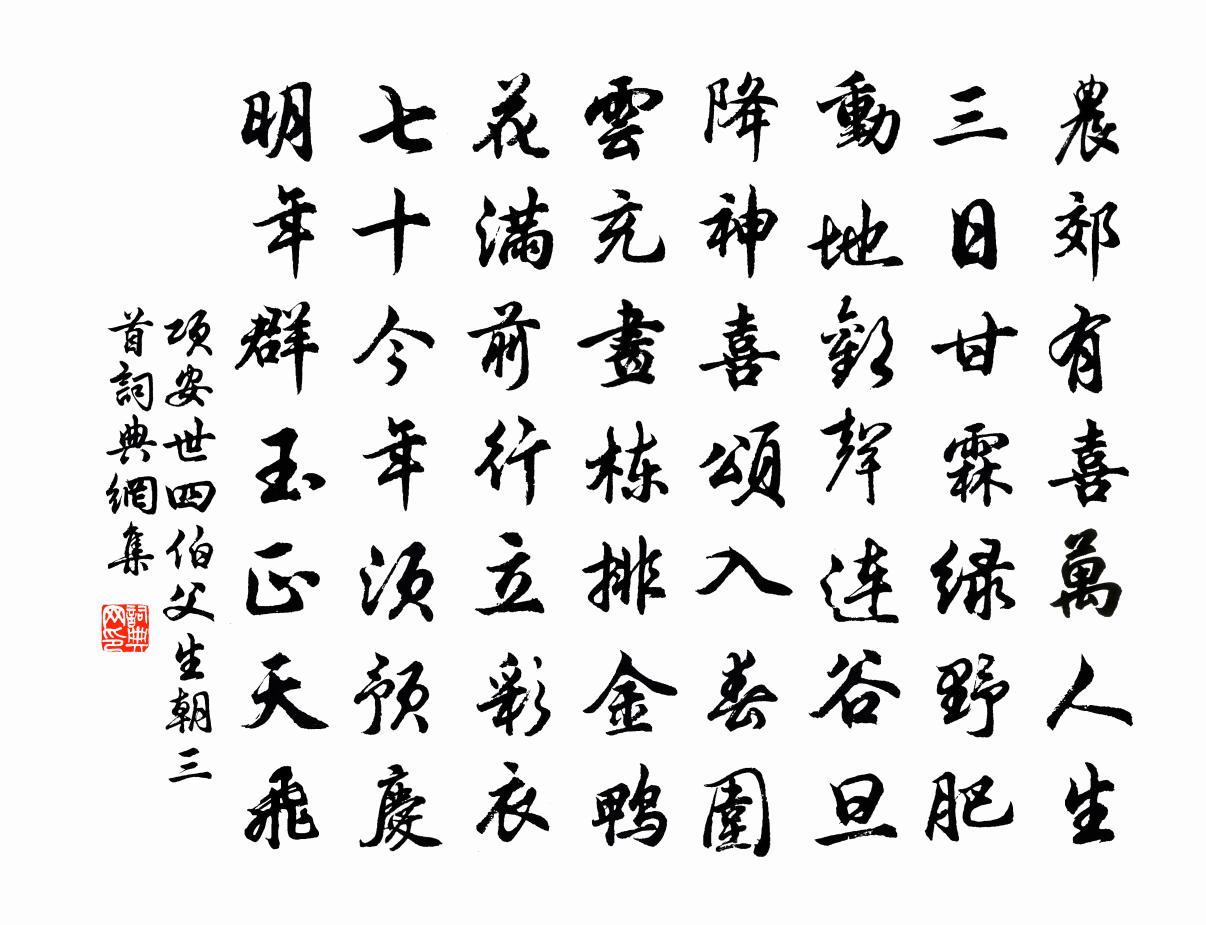 農郊有喜萬人生
三日甘霖緑野肥
動地歡聲連谷旦
降神喜頌入春圍
雲充畫棟排金鴨
花滿前行立彩衣
七十今年須預慶
明年群玉正天飛
項安世四伯父生朝三
首詞典網集
詞典网印